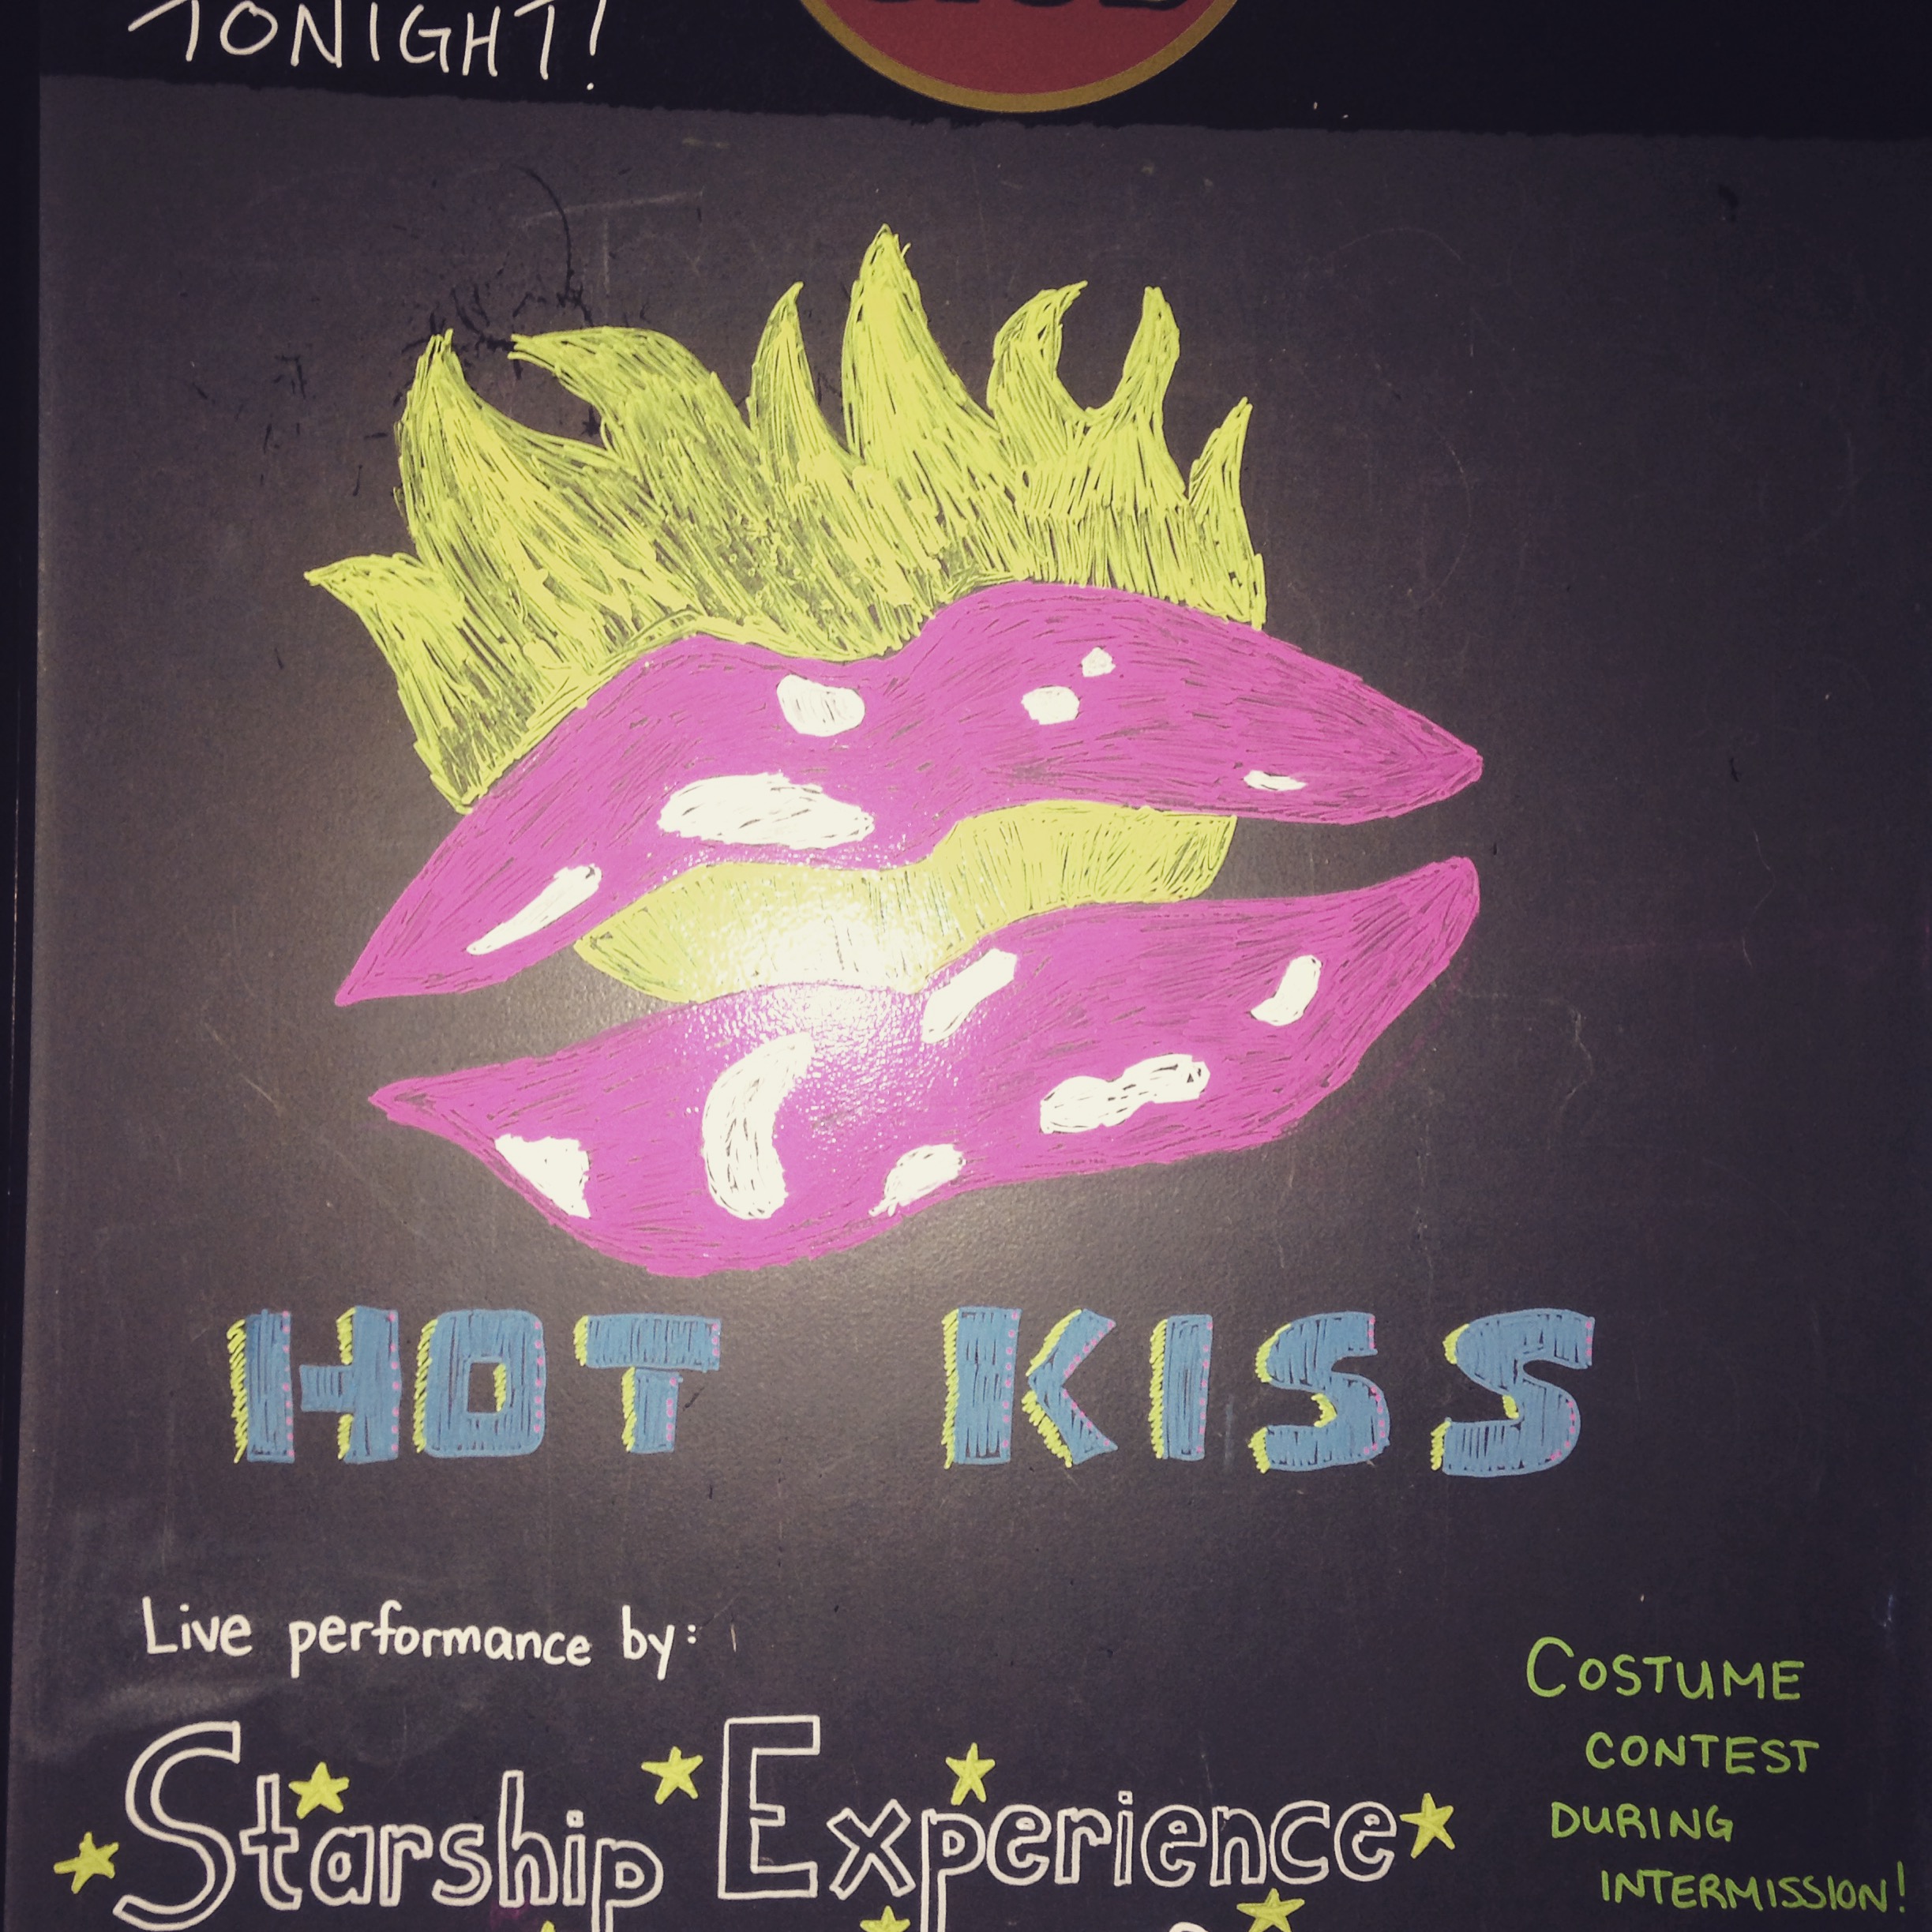 TONIGHT!
HOT KISS
Live performance by:
Starship Experience
COSTUME
CONTEST
DURING
INTERMISSION!